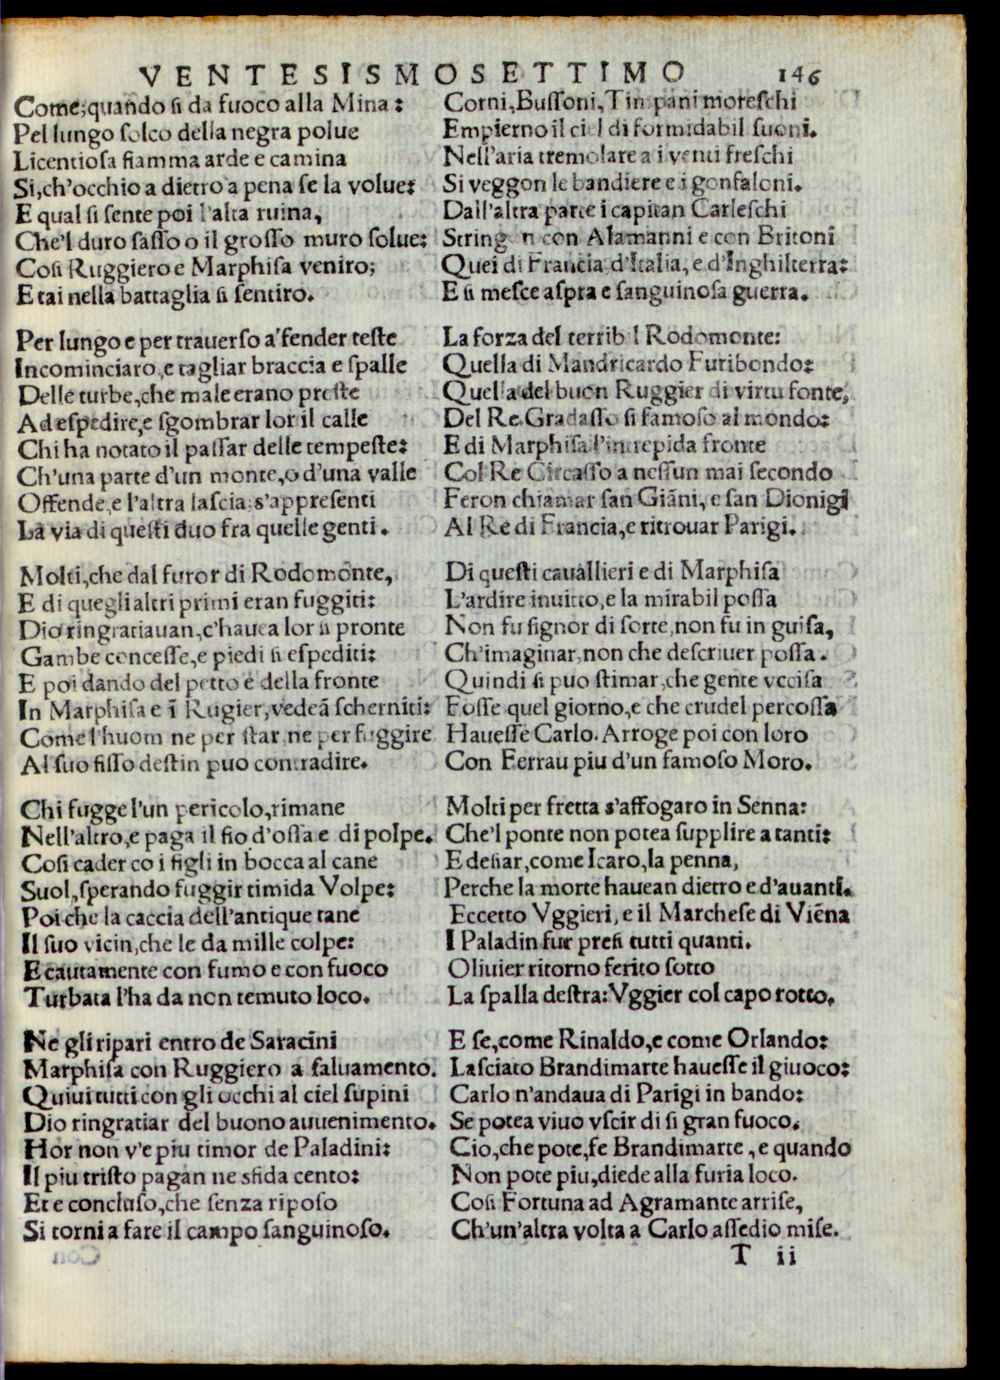 VENTESISMOSETTIMO 146
Come, quando si da fuoco alla Mina:
Pel lungo solco della negra polue
Licentiosa fiamma arde e camina
Si, ch'occhio a dietro a pena se la volue:
E qual si sente poi l'alta ruina,
Che'l duro sasso o il grosso muro solue:
Cosi Ruggiero e Marphisa veniro;
E tai nella battaglia si sentiro.
Per lungo e per trauerso a fender teste
Incominciaro, e tagliar braccia e spalle
Delle turbe, che male erano preste
Ad espedire, e sgombrar lor il calle
Chi ha notato il passar delle tempeste:
Ch'una parte d'un monte, o d'una valle
Offende, e l'altra lascia: s'appresenti
La via di questi duo fra quelle genti.
Molti, che dal furor di Rodomonte,
E di quegli altri primi eran fuggiti:
Dio ringratiauan, c'hauea lor si pronte
Gambe concesse, e piedi si espediti:
E poi dando del petto e della fronte
In Marphisa e ī Rugier, vedeā scherniti:
Come l'huom ne per star, ne per fuggire
Al suo fisso destin puo contradire.
Chi fugge l'un pericolo, rimane
Nell'altro, e paga il fio d'ossa e di polpe.
Cosi cader co i figli in bocca al cane
Suol, sperando fuggir timida Volpe:
Poi che la caccia dell'antique tane
Il suo vicin, che le da mille colpe:
E cautamente con fumo e con fuoco
Turbata l'ha da non temuto loco.
Ne gli ripari entro de Saracini
Marphisa con Ruggiero a saluamento.
Quiui tutti con gli occhi al ciel supini
Dio ringratiar del buono auuenimento.
Hor non v'e piu timor de Paladini:
Il piu tristo pagan ne sfida cento:
Et e concluso, che senza riposo
Si torni a fare il campo sanguinoso.
Corni, Bussoni, Timpani moreschi
Empierno il ciel di formidabil suoni.
Nell'aria tremolare a i venti freschi
Si veggon le bandiere e i gonfaloni.
Dall'altra parte i capitan Carleschi
Stringon con Alamanni e con Britoni
Quei di Francia d'Italia, e d'Inghilterra:
E si mesce aspra e sanguinosa guerra.
La forza del terribil Rodomonte:
Quella di Mandricardo Furibondo:
Quella del buon Ruggier di virtu fonte,
Del Re Gradasso si famoso al mondo:
E di Marphisa l'intrepida fronte
Col Re Circasso a nessun mai secondo
Feron chiamar san Giāni, e san Dionigi
Al Re di Francia, e ritrouar Parigi.
Di questi cauallieri e di Marphisa
L'ardire inuitto, e la mirabil possa
Non fu signor di sorte, non fu in guisa,
Ch'imaginar, non che descriuer possa.
Quindi si puo stimar, che gente vccisa
Fosse quel giorno, e che crudel percossa
Hauesse Carlo. Arroge poi con loro
Con Ferrau piu d'un famoso Moro.
Molti per fretta s'affogaro in Senna:
Che'l ponte non potea supplire a tanti:
E desiar, come Icaro, la penna,
Perche la morte hauean dietro e d'auanti.
Eccetto Vggieri, e il Marchese di Viēna
I Paladin fur presi tutti quanti.
Oliuier ritorno ferito sotto
La spalla destra: Vggier col capo rotto.
E se, come Rinaldo, e come Orlando:
Lasciato Brandimarte hauesse il giuoco:
Carlo n'andaua di Parigi in bando:
Se potea viuo vscir di si gran fuoco.
Cio, che pote, fe Brandimarte, e quando
Non pote piu, diede alla furia loco.
Cosi Fortuna ad Agramante arrise,
Ch'un'altra volta a Carlo assedio mise.
T ii